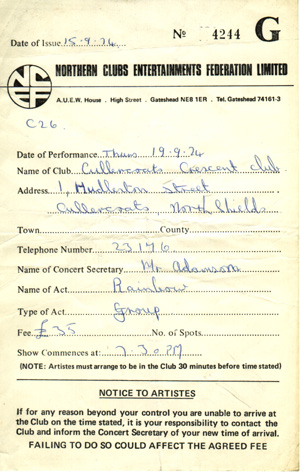 Date of Issue 15.9.74 Nº 4244 G
NCEF
NORTHERN CLUBS ENTERTAINMENTS FEDERATION LIMITED
A.U.E.W. House . High Street . Gateshead NE8 1ER . Tel. Gateshead 74161-3
C26.
Date of Performance Thurs 19.9.74
Name of Club Cullercoats Crescent Club
Address 1, Street
Cullercoats North Shields
Town County
Telephone Number 23176
Name of Concert Secretary Mr Adamson
Name of Act Rainbow
Type of Act Group
Fee £35 No. of Spots
Show Commences at: 7.30 PM
(NOTE: Artistes must arrange to be in the Club 30 minutes before time stated)
NOTICE TO ARTISTES
If for any reason beyond your control you are unable to arrive at
the Club on the time stated, it is your responsibility to contact the
Club and inform the Concert Secretary of your new time of arrival.
FAILING TO DO SO COULD AFFECT THE AGREED FEE